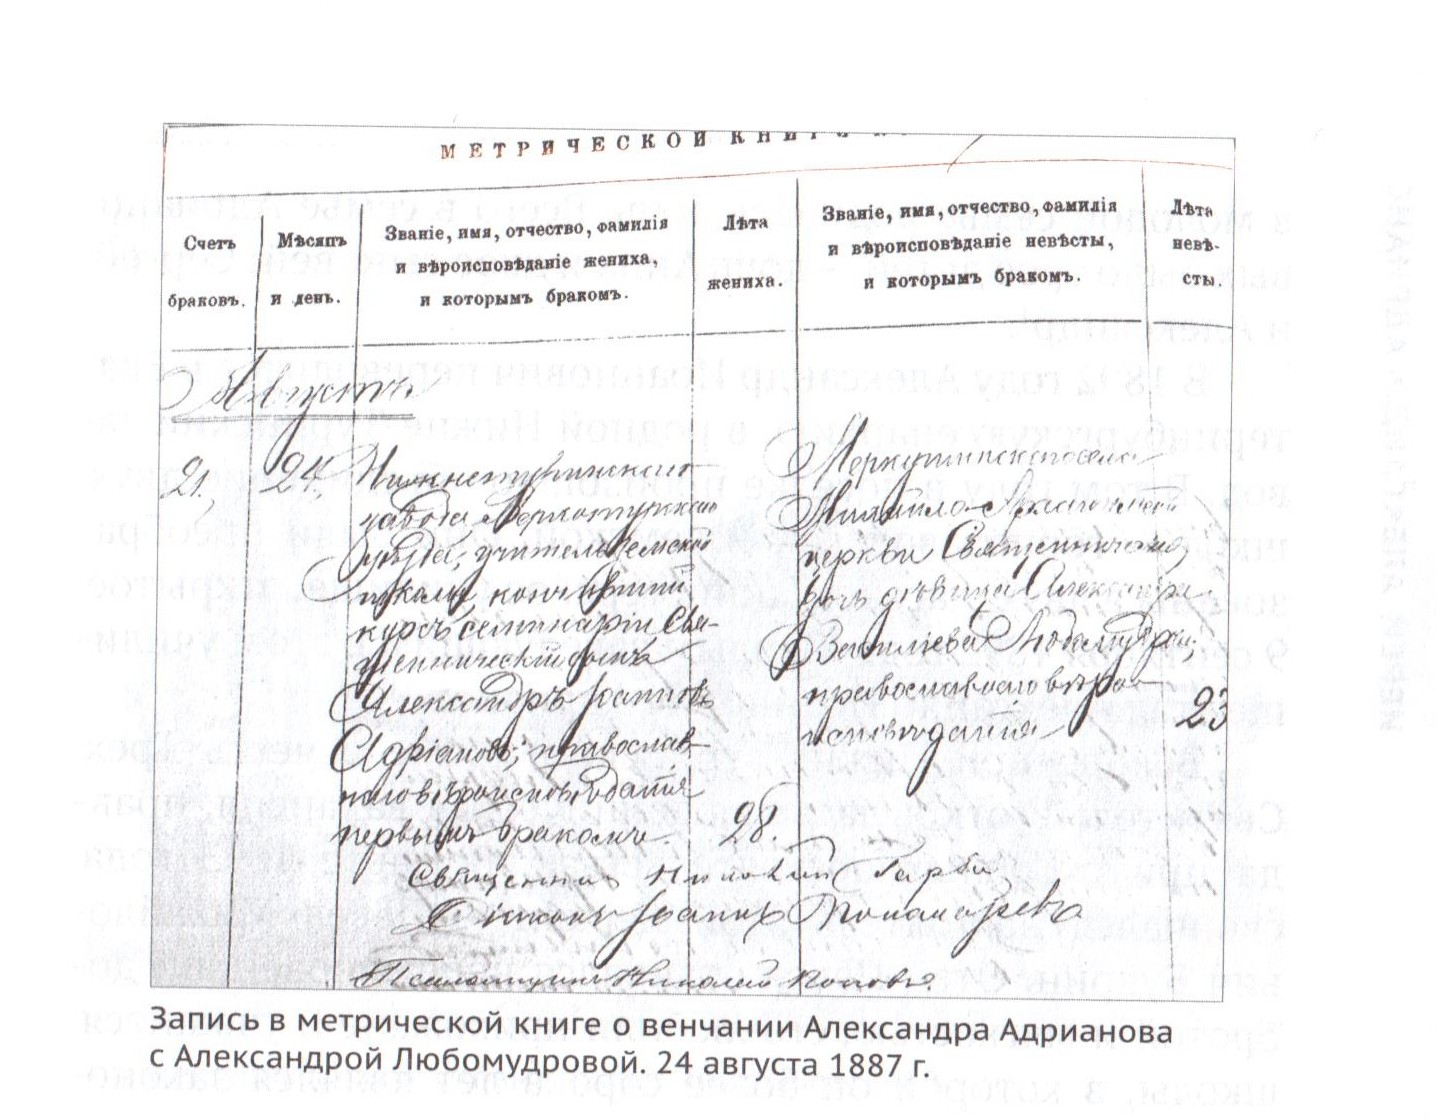 МЕТРИЧЕСКОЙ КНИГ
Счетъ браковъ.
Мѣсяцъ и день.
Званіе, имя, отчество, фамилія
и вѣроисповѣданіе жениха,
и которымъ бракомъ.
Лѣта жениха.
Званіе, имя, отчество, фамилія
и вѣроисповѣданіе невѣсты,
и которымъ бракомъ.
Лѣта невѣ-
сты.
Августъ
21.
24.
Нижнетуринскаго
завода Верхотурскаго
уѣзда, учитель земской
школы, кончившій
курсъ семинаріи Свя-
щенническій сынъ
Александръ Іоанновъ
Адріановъ, православ-
наго вѣроисповѣданія
первымъ бракомъ.
28.
Меркушинскаго села
Михайло-Архангельской
церкви Священническая
дочь дѣвица Александра
Васильева Любомудрова,
православнаго вѣро-
исповѣданія
23
Священникъ
Діаконъ Іоаннъ Пономаревъ
Псаломщикъ Николай Поповъ.
Запись в метрической книге о венчании Александра Адрианова
с Александрой Любомудровой. 24 августа 1887 г.